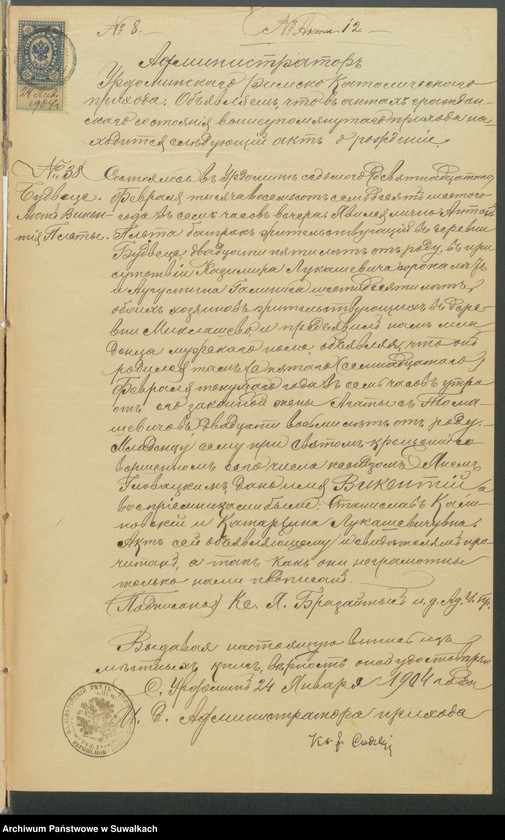 № 8.
№ Акта 12
24 Янв.
1904 г.
Администраторъ
Урдоминскаго Римско Католическаго
прихода. Объявляетъ, что въ актахъ граждан-
скаго состоянія вышеупомянутаго прихода на-
ходится слѣдующій актъ о рожденіи.
№ 38
Будвеце.
Викен-
тія Плеты.
Состоялось въ Урдоминѣ седьмого Девятнадцатого
Февраля тысяча восемьсотъ семьдесятъ шестого
года въ семь часовъ вечера. Явился лично Антонъ
Плета батракъ жительствующій въ деревни
Будвеце двадцати пяти лѣтъ отъ роду, въ при-
сутствіи Казимира Лукашевича сорока лѣтъ
и Августина шестидесяти лѣтъ
обоихъ хозяиновъ жительствующихъ въ дере-
вни Миклашево и предъявилъ намъ мла-
денца мужескаго пола объявляя, что онъ
родился тамъ пятого (семнадцатаго)
Февраля текущаго года въ семь часовъ утра
отъ его законной жены Агаты съ Тома-
шевичовъ двадцати восьми лѣтъ отъ роду.
Младенцу сему при святомъ крещеніи со-
вершенномъ сего числа ксендзомъ
Гловацкимъ дано имя Викентій а
воспріемниками были: Станиславъ Кали-
новскій и Катаржина Лукашевичувна.
Актъ сей объявляющему и свидѣтелямъ про-
читанъ, а такъ какъ они неграмотные
только нами подписанъ.
(Подписано) Кс. А. Бразайтысъ и. д. Ад. У. Пр.
Выдавая настоящую выпись изъ
мѣстныхъ книгъ, вѣрность оной удостовѣряю
С. Урдоминъ 24 Января 1904 года
И. Д. Администратора прихода
Ks. J.
Archiwum Państwowe w Suwałkach